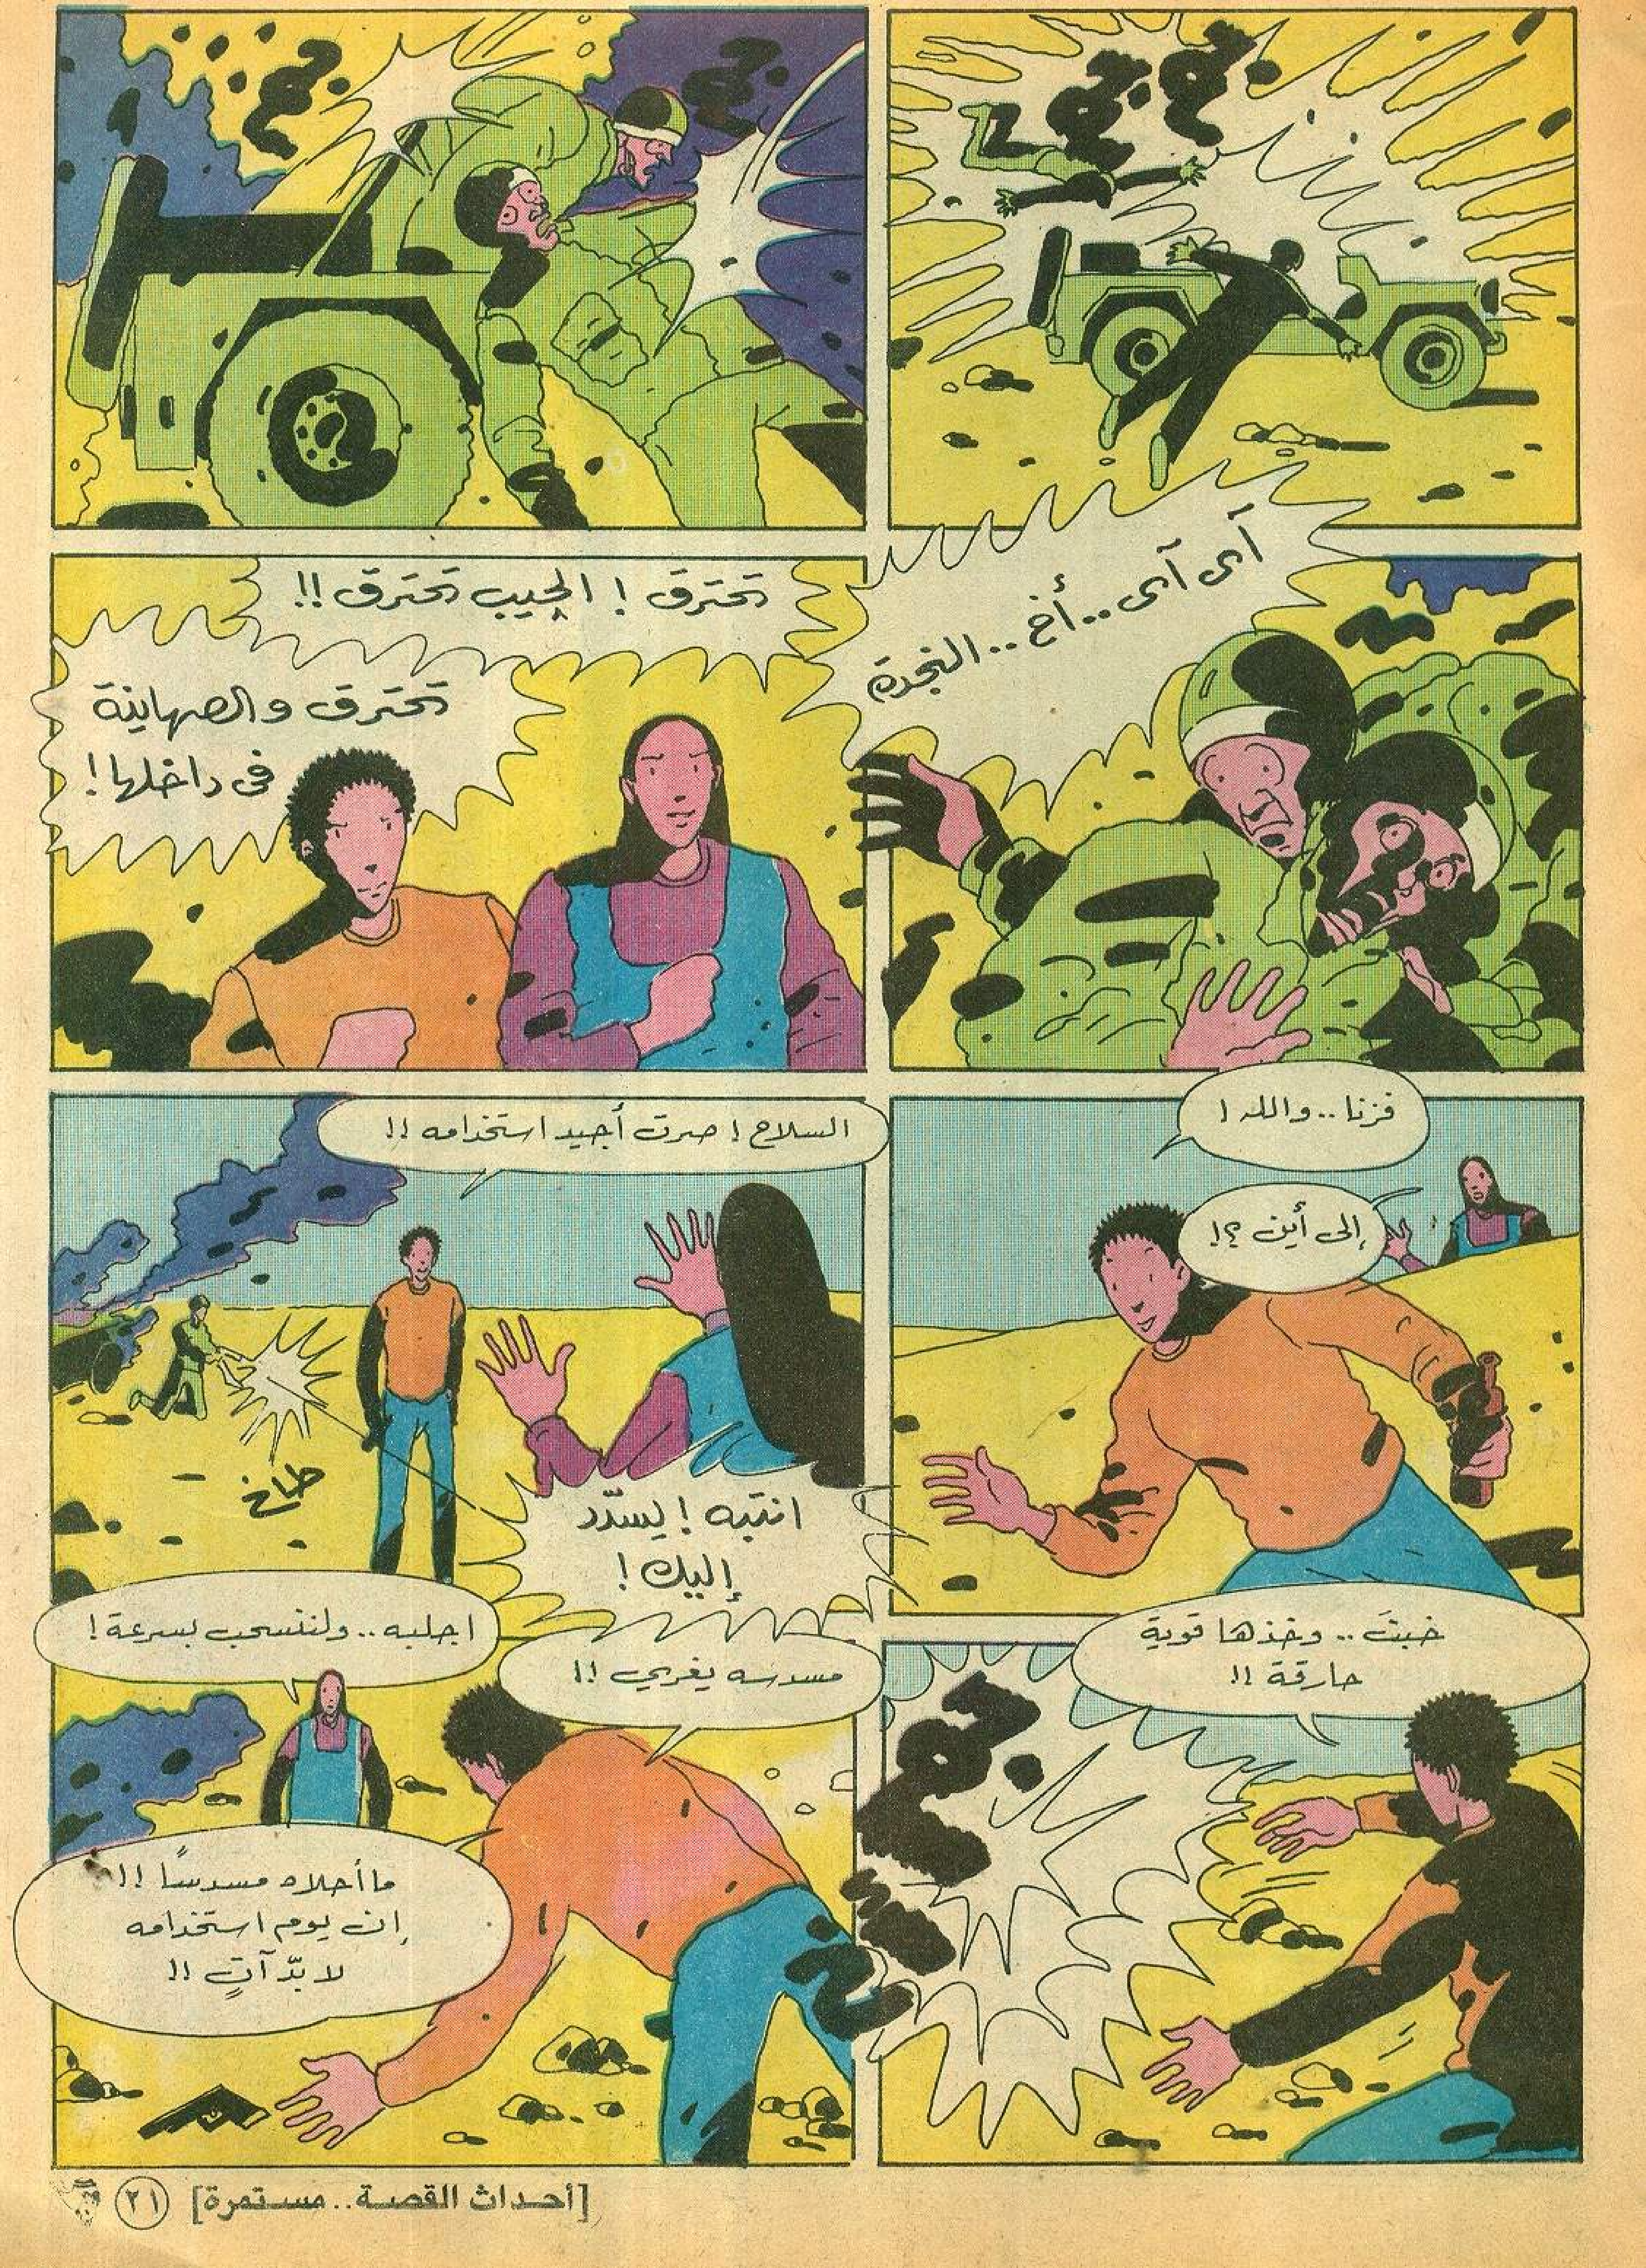 بوم
آی آی..أخ..النجدة
تحترق! الجيب تحترق!!
تحترق والصهاينة
في داخلها!
فزنا..والله!
إلى أين ؟!
السلاح! صرت أجيد استخدامه!!
طاخ
انتبه! يسدّد
إليك!
خبثَ.. وخذها قوية
حارقة!!
بوم
مسدسه يغري!!
اجلبه..ولننسحب بسرعة!
ما أحلاه مسدسًا!!
إن يوم استخدامه
لا بدّ آتٍ!!
[أحداث القصة..مستمرة] ٢١